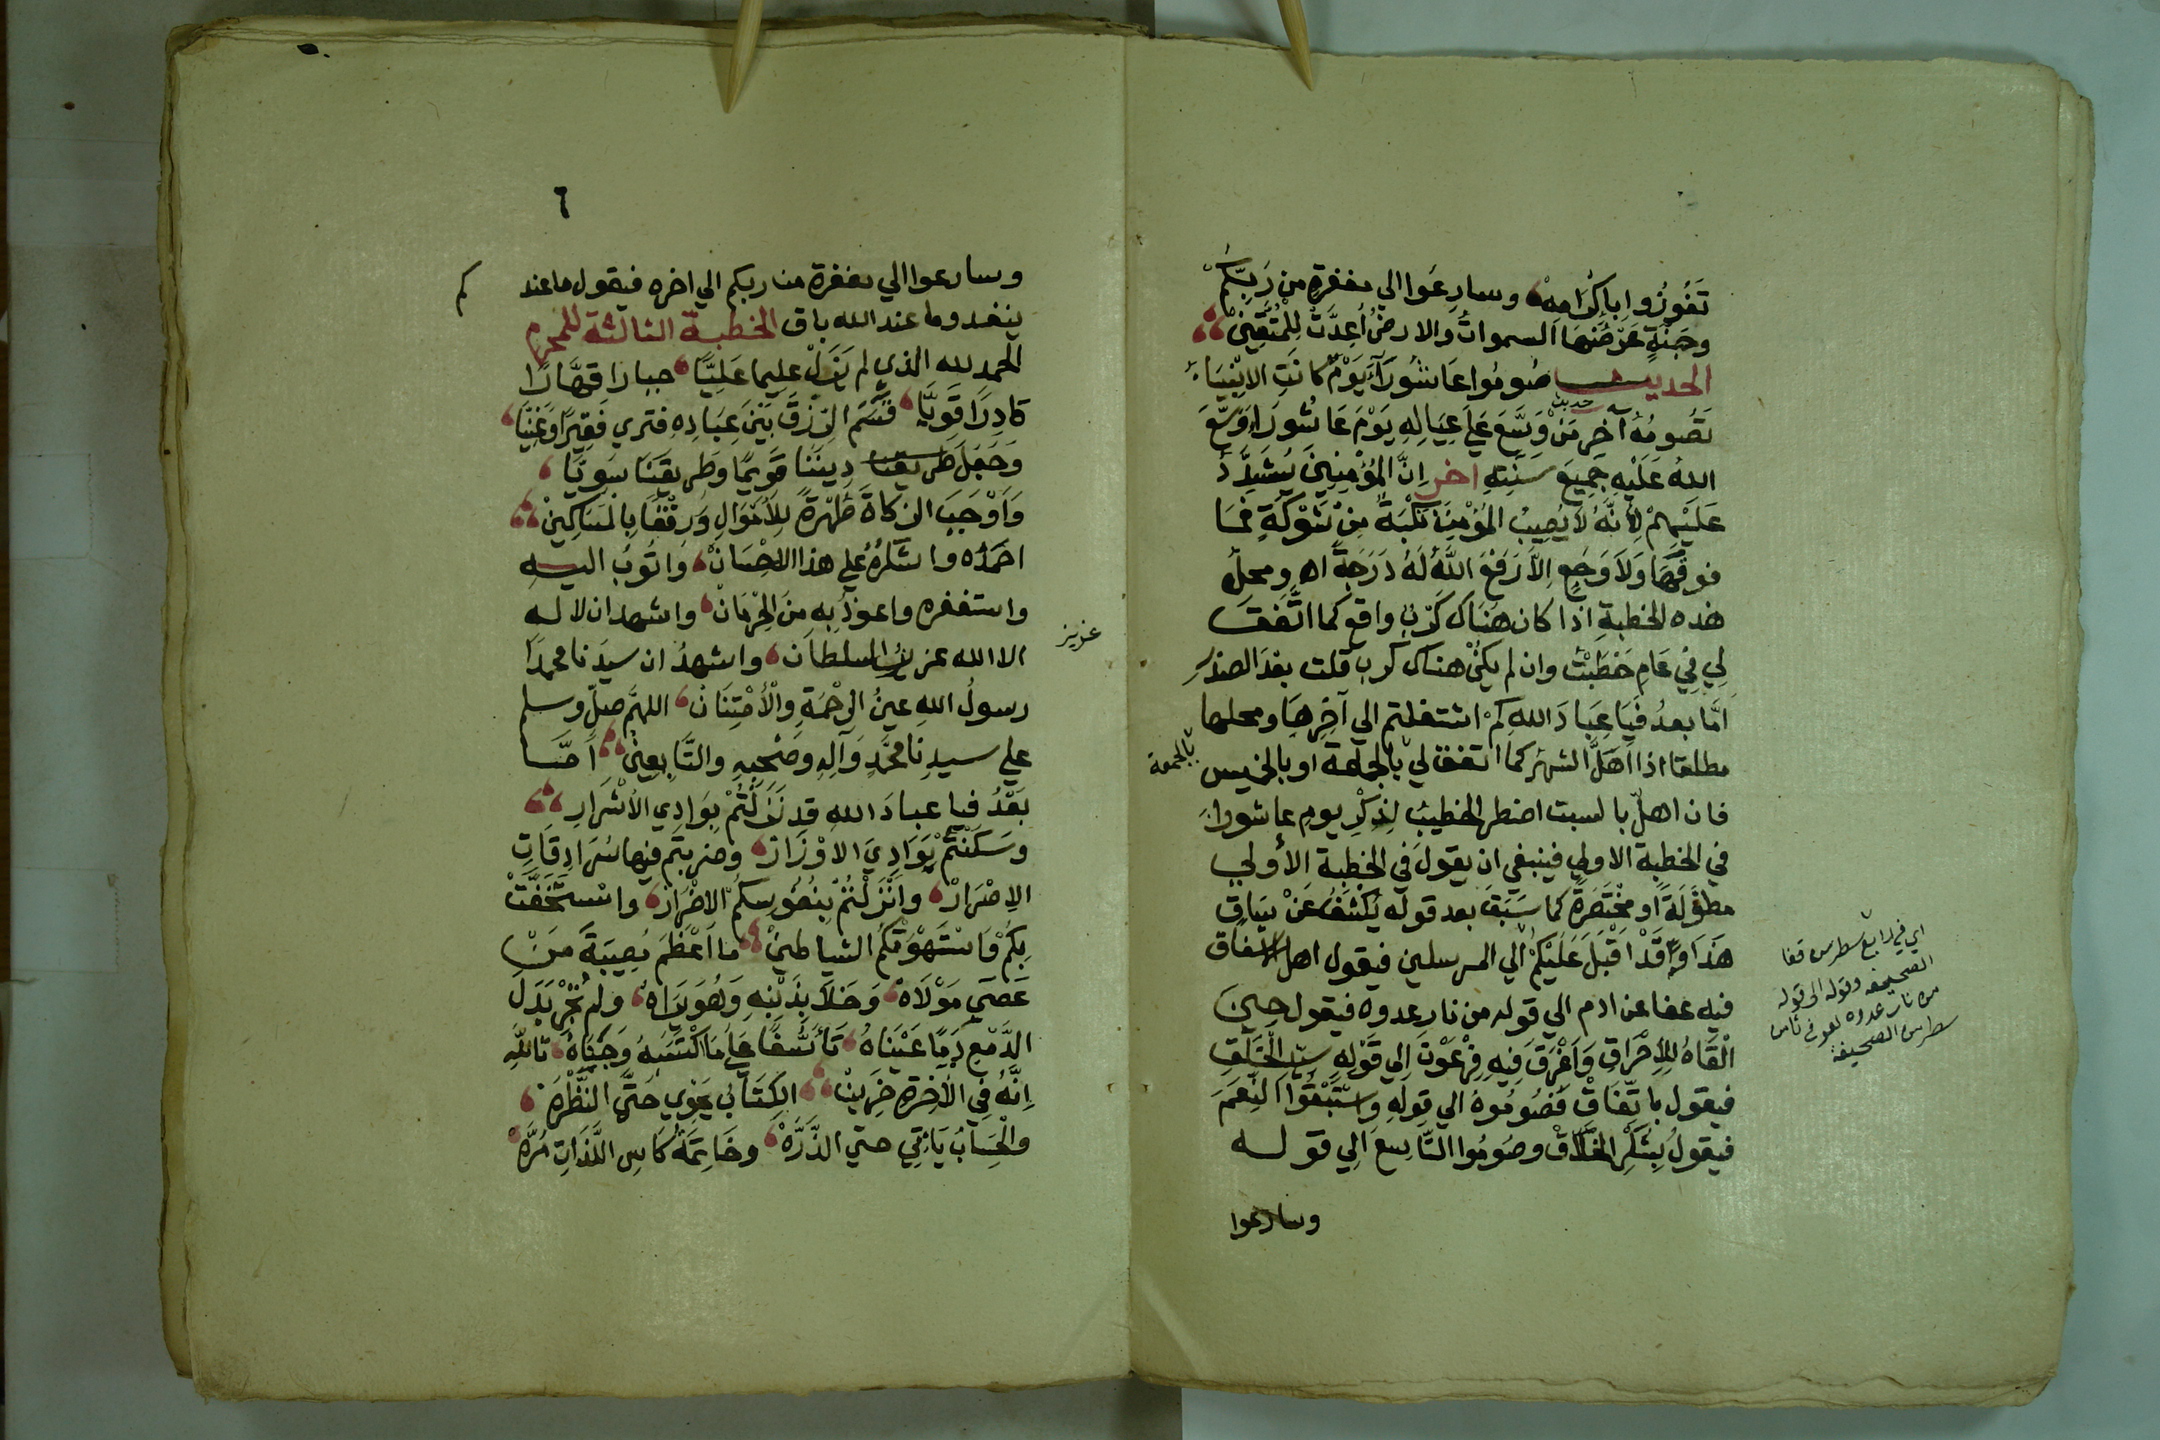 تَفُوزُوا بِإِكْرَامِهْ وسارِعُوا الي مغفرةٍ من رَبِّكُمْ
وجَنَّةٍ عَرْضُهَا السمواتُ والارضُ أُعِدَّتْ لِلْمُتَّقِينْ
الحديث صُومُوا عَاشُورَآءَ يَوْمٌ كانَتِ الانْبِيَاءُ
تَصُومُهُ آخر حديث مَنْ وَسَّعَ عَلَي عِيَالِهِ يَوْمَ عَاشُورَاءَ وَسَّعَ
اللهُ عَلَيْهِ جَمِيعَ سَنَتِهِ اخر اِنَّ المُؤْمِنِينَ يُشَدَّدُ
عَلَيْهِمْ لِأَنَّهُ لَا يُصِيبُ المُؤْمِنَ نَكْبَةٌ مِنْ شَوْكَةٍ فَمَا
فوقَهَا وَلَا وَجَعٍ اِلَّا رَفَعَ اللهُ لَهُ دَرَجَةً اه ومحل
هذه الخطبةِ اذا كان هُنَاكَ كَرْبٌ واقع كما اتَّفَقَ
لِي فِي عَامِ خَطَبْتُ وان لم يكُنْ هناك كرب قلت بعدَ الصدر
امَّا بعدُ فَيَا عِبَادَ اللهِ كَمْ اشتغلتم الي آخِرِهَا ومحلها
مطلقا اذا اَهَلَّ الشهرُ كما اتفق لي بالجمعة او بالخميس
بالجمعة
فان اهلّ بالسبت اضطر الخطيبُ لِذِكْرِ يومِ عاشوراءَ
في الخطبة الاولي فينبغي ان يقولَ في الخطبة الأولي
مطوّلَةً او مُخْتَصَرَةً كما سَبَقَ بعد قوله يَكْشِفُ عَنْ سَاقٍ
هَذَا وَقَدْ اَقْبَلَ عَلَيْكُمْ الي المرسلين فيقول اهل النفاق
فيه عفا عن ادم الي قوله من نار عدوه فيقول حِينَ
اَلْقَاهُ لِلْاِحْرَاقِ وَاَغْرَقَ فِيهِ فِرْعَوْنَ اِلي قَوْلِهِ سَيِّدِ الْخَلْقِ
فيقول باتّفَاقْ فَصُومُوهُ الي قولِهِ وَاسْتَبْقُوا النِّعَمَ
فيقولُ بِشُكْرِ الخَلَّاقْ وصُومُوا التَّاسِعَ اِلي قوله
وسارعوا
اي في رابع سطر من قفا
الصحيفة وقوله الي قوله
من نار عدوه هو في ثامن
سطر من الصحيفة
٦
وسارعوا الي مغفرة من ربكم الي اخره فيقول ما عند
كم
ينفد وما عند الله باق الخطبة الثالثة للمحرم
الحمد لله الذي لم يَزَلْ عليما عَلِيًّا جبارا قهَّارًا
قادِرًا قَوِيًّا قَسَّمَ الرِّزْقَ بَيْنَ عِبَادِهِ فتري فَقِيرًا وَغَنِيًّا
وَجَعَلَ طريقنا دِينَنَا قَوِيمًا وَطَرِيقَنَا سَوِيًّا
وَاَوْجَبَ الزكاةَ طُهْرَةً لِلْاَمْوَالِ وَرِفْقًا بِالمَسَاكِينْ
احمَدُه واشكُرُهُ علي هذا الاحْسَانْ واتُوبُ اليه
واستغفره واعوذُ بِهِ مِنَ الحِرْمَانْ واشهد ان لا له
الا الله عزيز السلطانْ واشهدُ ان سيدَنا محمدًا
عزيز
رسولُ اللهِ عينُ الرَّحْمَةِ والْأَمْتِنَانْ اللهمَّ صلِّ وسلم
علي سيدِنا محمَّدٍ وَآلِهِ وَصَحْبِهِ والتَّابِعِينْ اَمَّا
بَعْدُ فيا عبادَ اللهِ قد نَزَلْتُمْ بِوَادِي الْأَشْرَارِ
وَسَكَنْتُمْ بِوَادِيَ الاَوْزَارْ وضربتم فيها سُرَادِقَاتِ
الاِصْرَارْ وَاَنْزَلْتُمْ بِنُفُوسِكُمْ الاضْرَارْ واسْتَخَفَّتْ
بِكُمْ وَاسْتَهْوَتْكُمُ الشياطينْ ما اَعْظَمَ مُصِيبَةَ مَنْ
عَصَي مَوْلَاهْ وَخَلَا بِذَنْبِهِ وَهُوَ يَرَاهْ ولم تَجْرِ بَدَلَ
الدَّمْعِ دَمًا عَيْنَاهُ تَأَسُّفًا عَلي مَا اكْتَسَبَهُ وَجَنَاهُ تاللهِ
اِنَّهُ فِي الاخرةِ حَزِينْ الكِتَابُ يَحْوِي حَتَّي النَّظْرَهْ
والْحِسَابُ يَأتِي حتي الذَّرَّهْ وخَاتِمَةُ كَاسِ اللَّذَاتِ مُرَّهْ